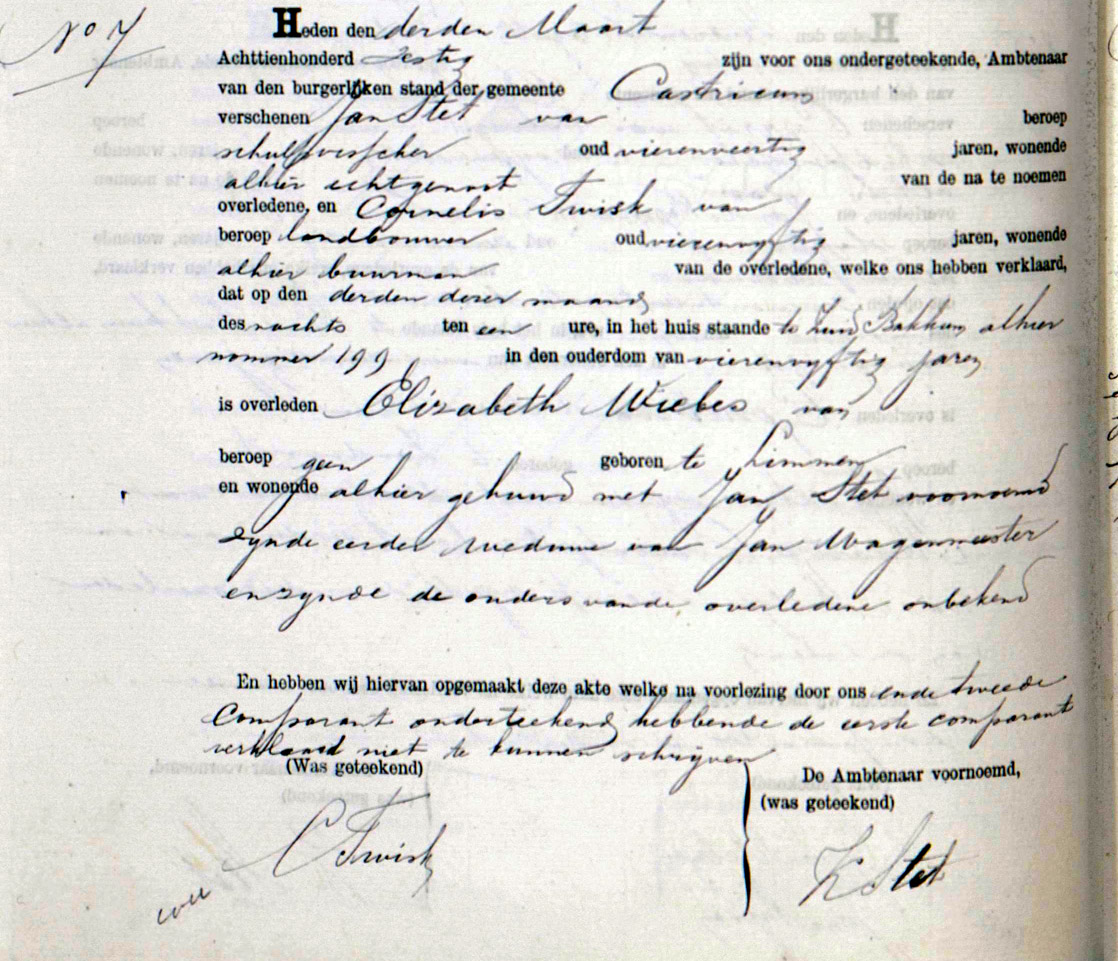 No 7
Heden den derden Maart
Achttienhonderd Zestig zijn voor ons ondergeteekende, Ambtenaar
van den burgerlijken stand der gemeente Castricum
verschenen Jan Stet van beroep
schulpvisscher oud vierenveertig jaren, wonende
alhier echtgenoot van de na te noemen
overledene, en Cornelis Twisk van
beroep landbouwer oud vierenvyftig jaren, wonende
alhier buurman van de overledene, welke ons hebben verklaard,
dat op den derden dezer maand
des nachts ten een ure, in het huis staande te Zuid Bakkum alhier
nommer 199 in den ouderdom van vierenvyftig jaren
is overleden Elizabeth Wiebes van
beroep geen geboren te Limmen
en wonende alhier gehuwd met Jan Stet voornoemd
zynde eerder weduwe van Jan Wagenmeester
en zynde de ouders van de overledene onbekend
En hebben wij hiervan opgemaakt deze akte welke na voorlezing door ons en de tweede
Comparant onderteekend hebbende de eerste comparant
verklaard niet te kunnen schrijven
(Was geteekend) De Ambtenaar voornoemd,
(was geteekend)
C Twisk
K Stet